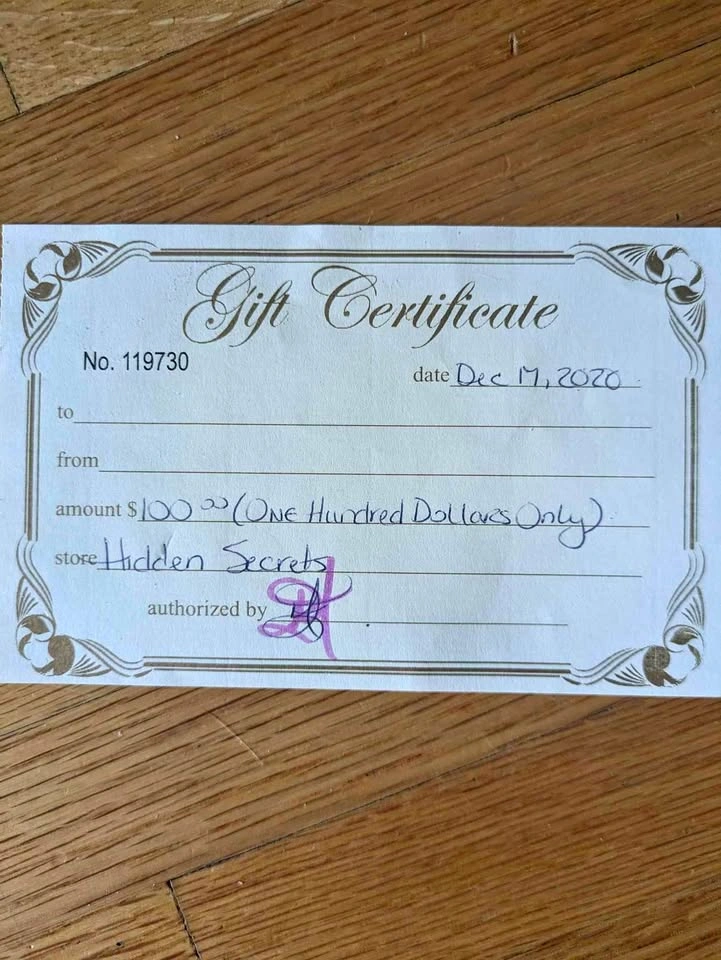 Gift Certificate
No. 119730
date Dec 17, 2020
to
from
amount $100.00 (One Hundred Dollars Only)
store Hidden Secrets
authorized by